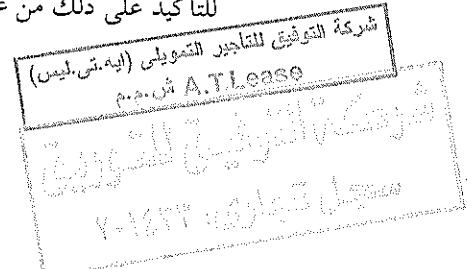 للتأكيد على ذلك من
شركة التوفيق للتأجير التمويلى (ايه.تى.ليس)
A.T.Lease ش.م.م
شركة التوفيق للتوريق
سجل تجارى: